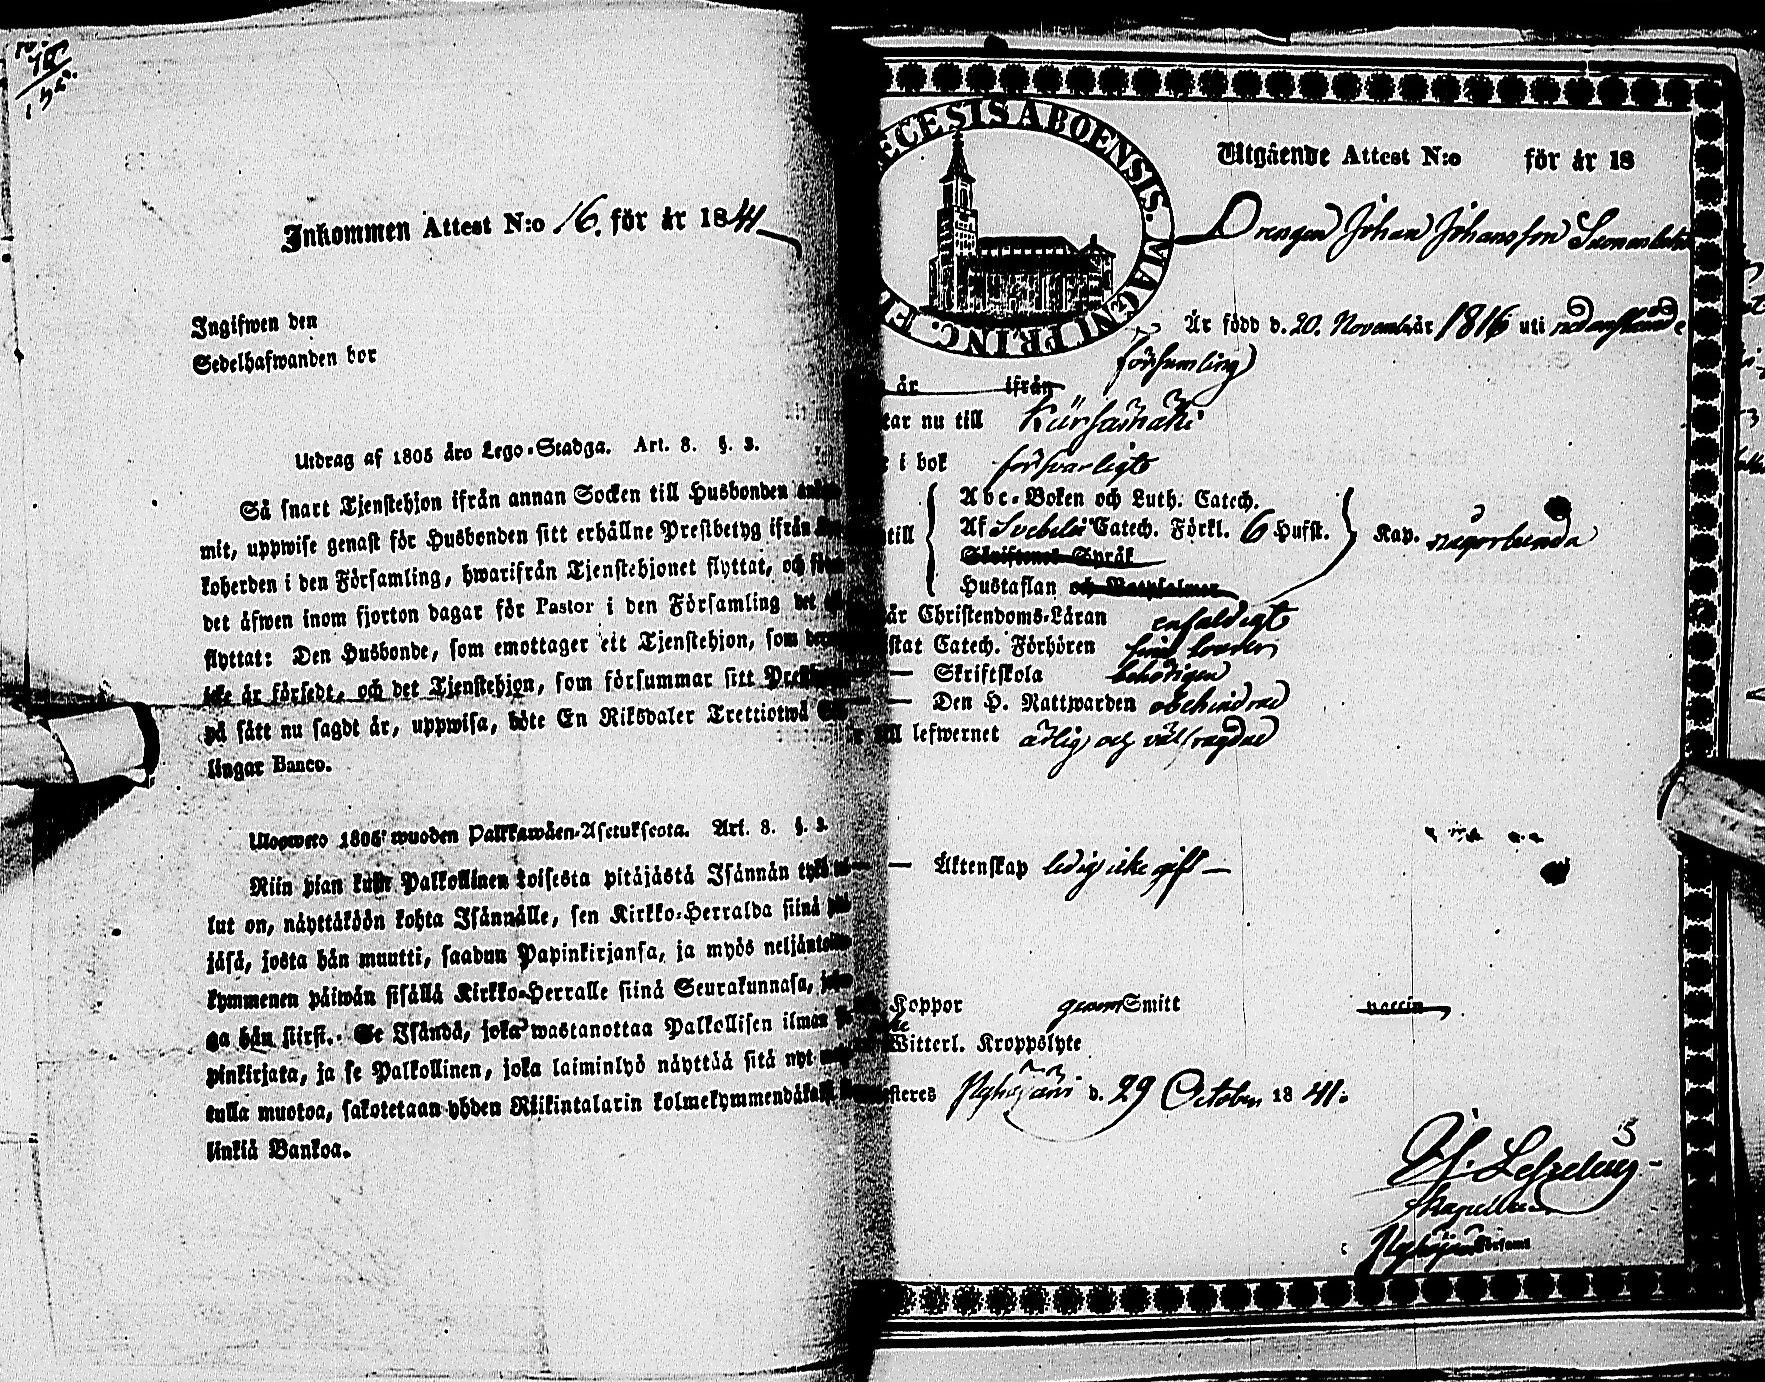 Inkommen Attest N:o 16. för år 1841
Ingifwen den
Sedelhafwanden bor
Utdrag af 1805 åro Lego-Stadga. Art. 8. §. 3.
Så snart Tjenstehjon ifrån annan Socken till Husbonden
mit, uppwise genast för Husbonden sitt erhållne Prestbetyg ifrån
koherden i den Församling, hwarifrån Tjenstehjonet flyttat, och
det äfwen inom fjorton dagar för Pastor i den Församling det
flyttat: Den Husbonde, som emottager ett Tjenstehjon, som
icke är försedt, och det Tjenstehjon, som försummar sitt
på sätt nu sagdt är, uppwisa, böte En Riksdaler Trettiotwå
lingar Banco.
Ulosweto 1805 wuoden Palkkawäen-Asetuksesta. Art. 8. §. 3.
Niin pian kuin Palkollinen toisesta pitäjästä Isännän tykö
lut on, näyttäköön kohta Isännälle, sen Kirkko-Herralda siinä
jäsä, josta hän muutti, saadun Papinkirjansa, ja myös neljäntoista
kymmenen päiwän sisällä Kirkko-Herralle siinä Seurakunnasa,
ga hän siirst. Se Isändä, joka wastanottaa Palkollisen ilman
pinkirjata, ja se Palkollinen, joka laiminlyö näyttää sitä nyt
tulla muotoa, sakotetaan yhden Riikintalarin kolmekymmendäkaksi
linkiä Bankoa.
ECESIS ABOENSIS. MAGNI PRINC. F
Utgående Attest N:o för år 18
Drengen Johan Johansson
Är född d. 20. November år 1816 uti nedanstående
församling
år ifrån
tar nu till Kiirsamäki
i bok försvarligt
Abc-Boken och Luth. Catech.
till Af Svebelii Catech. Förkl. 6 Hufst. Kap. någorlunda
Skriftenes Språk
Hustaflan och
är Christendoms-Läran enfaldigt
stat Catech. Förhören
— Skriftskola behörigen
— Den H. Nattwarden obehindrad
till lefwernet ärlig och välfragdad
— Äktenskap ledig icke gift —
Koppor genom Smitt vaccin
Witterl. Kroppslyte
steres Pyhäjärvi d. 29 October 1841.
Kapellan
Pyhäjärvi Församl